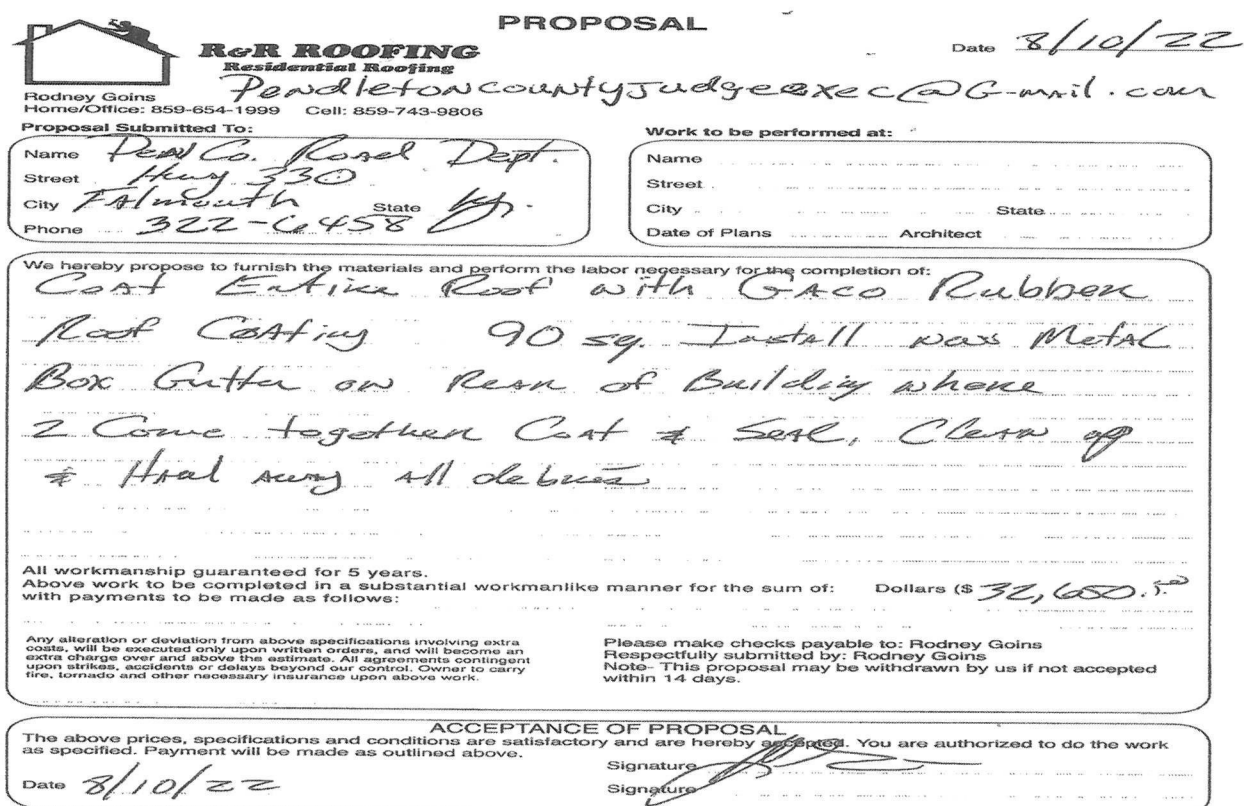 PROPOSAL
R&R ROOFING
Residential Roofing
Date 8/10/22
Pendletoncountyjudgeexec@G-mail.com
Rodney Goins
Home/Office: 859-654-1999 Cell: 859-743-9806
Proposal Submitted To:
Name Pen Co. Road Dept.
Street Hwy 330
City Falmouth State Ky.
Phone 322-6458
Work to be performed at:
Name
Street
City State
Date of Plans Architect
We hereby propose to furnish the materials and perform the labor necessary for the completion of:
Coat Entire Roof with GACO Rubber
Roof Coating 90 sq. Install new Metal
Box Gutter on Rear of Building where
2 Come together Coat & Seal, Clean up
& Haul away all debries
All workmanship guaranteed for 5 years.
Above work to be completed in a substantial workmanlike manner for the sum of: Dollars ($ 32,650.
with payments to be made as follows:
Any alteration or deviation from above specifications involving extra
costs, will be executed only upon written orders, and will become an
extra charge over and above the estimate. All agreements contingent
upon strikes, accidents or delays beyond our control. Owner to carry
fire, tornado and other necessary insurance upon above work.
Please make checks payable to: Rodney Goins
Respectfully submitted by: Rodney Goins
Note- This proposal may be withdrawn by us if not accepted
within 14 days.
ACCEPTANCE OF PROPOSAL
The above prices, specifications and conditions are satisfactory and are hereby accepted. You are authorized to do the work
as specified. Payment will be made as outlined above.
Date 8/10/22
Signature
Signature